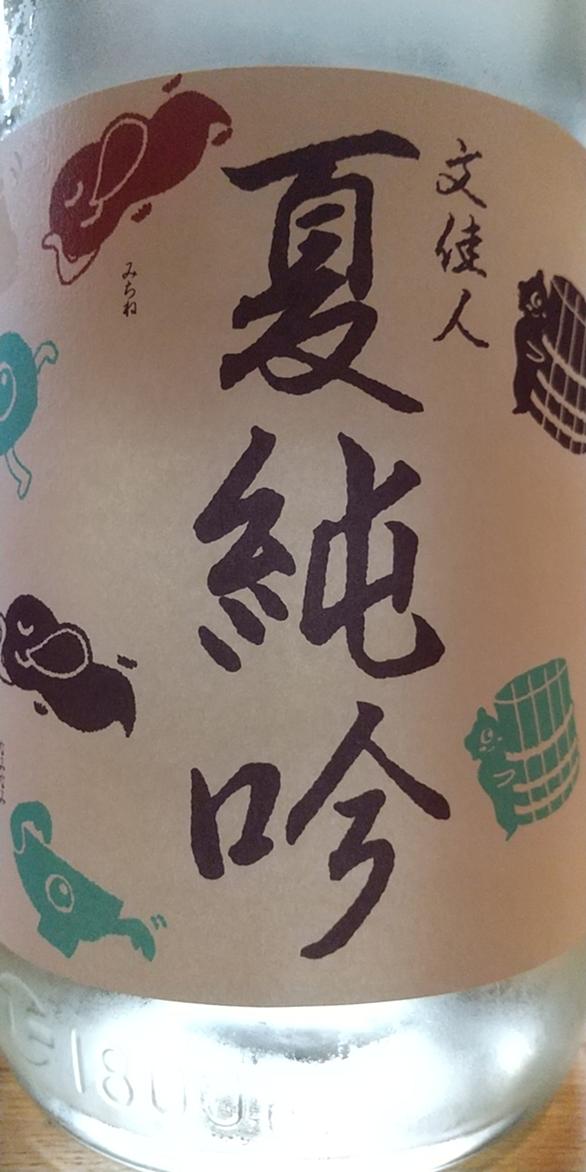 文佳人
夏純吟
みちね
1800